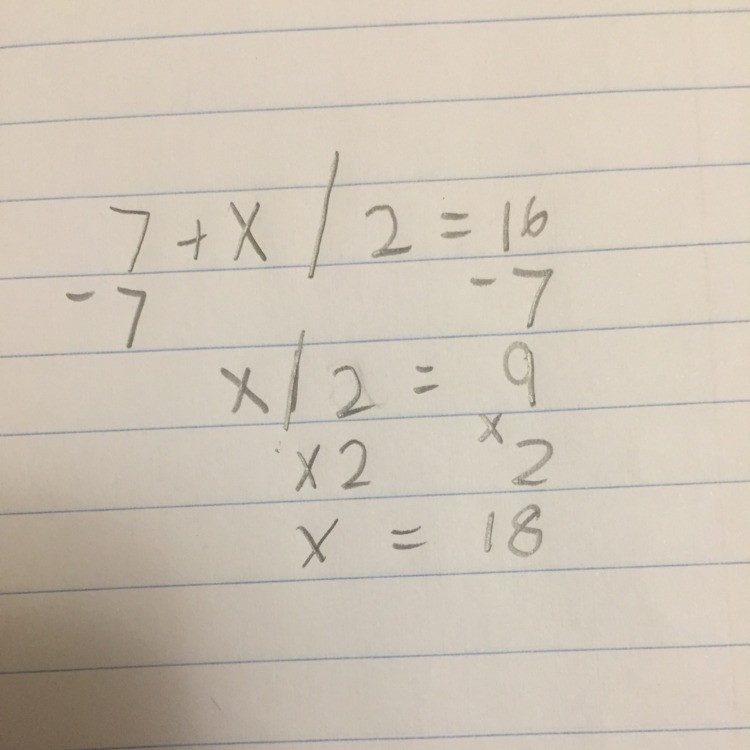 7 + x / 2 = 16
-7 -7
x / 2 = 9
x2 x2
x = 18